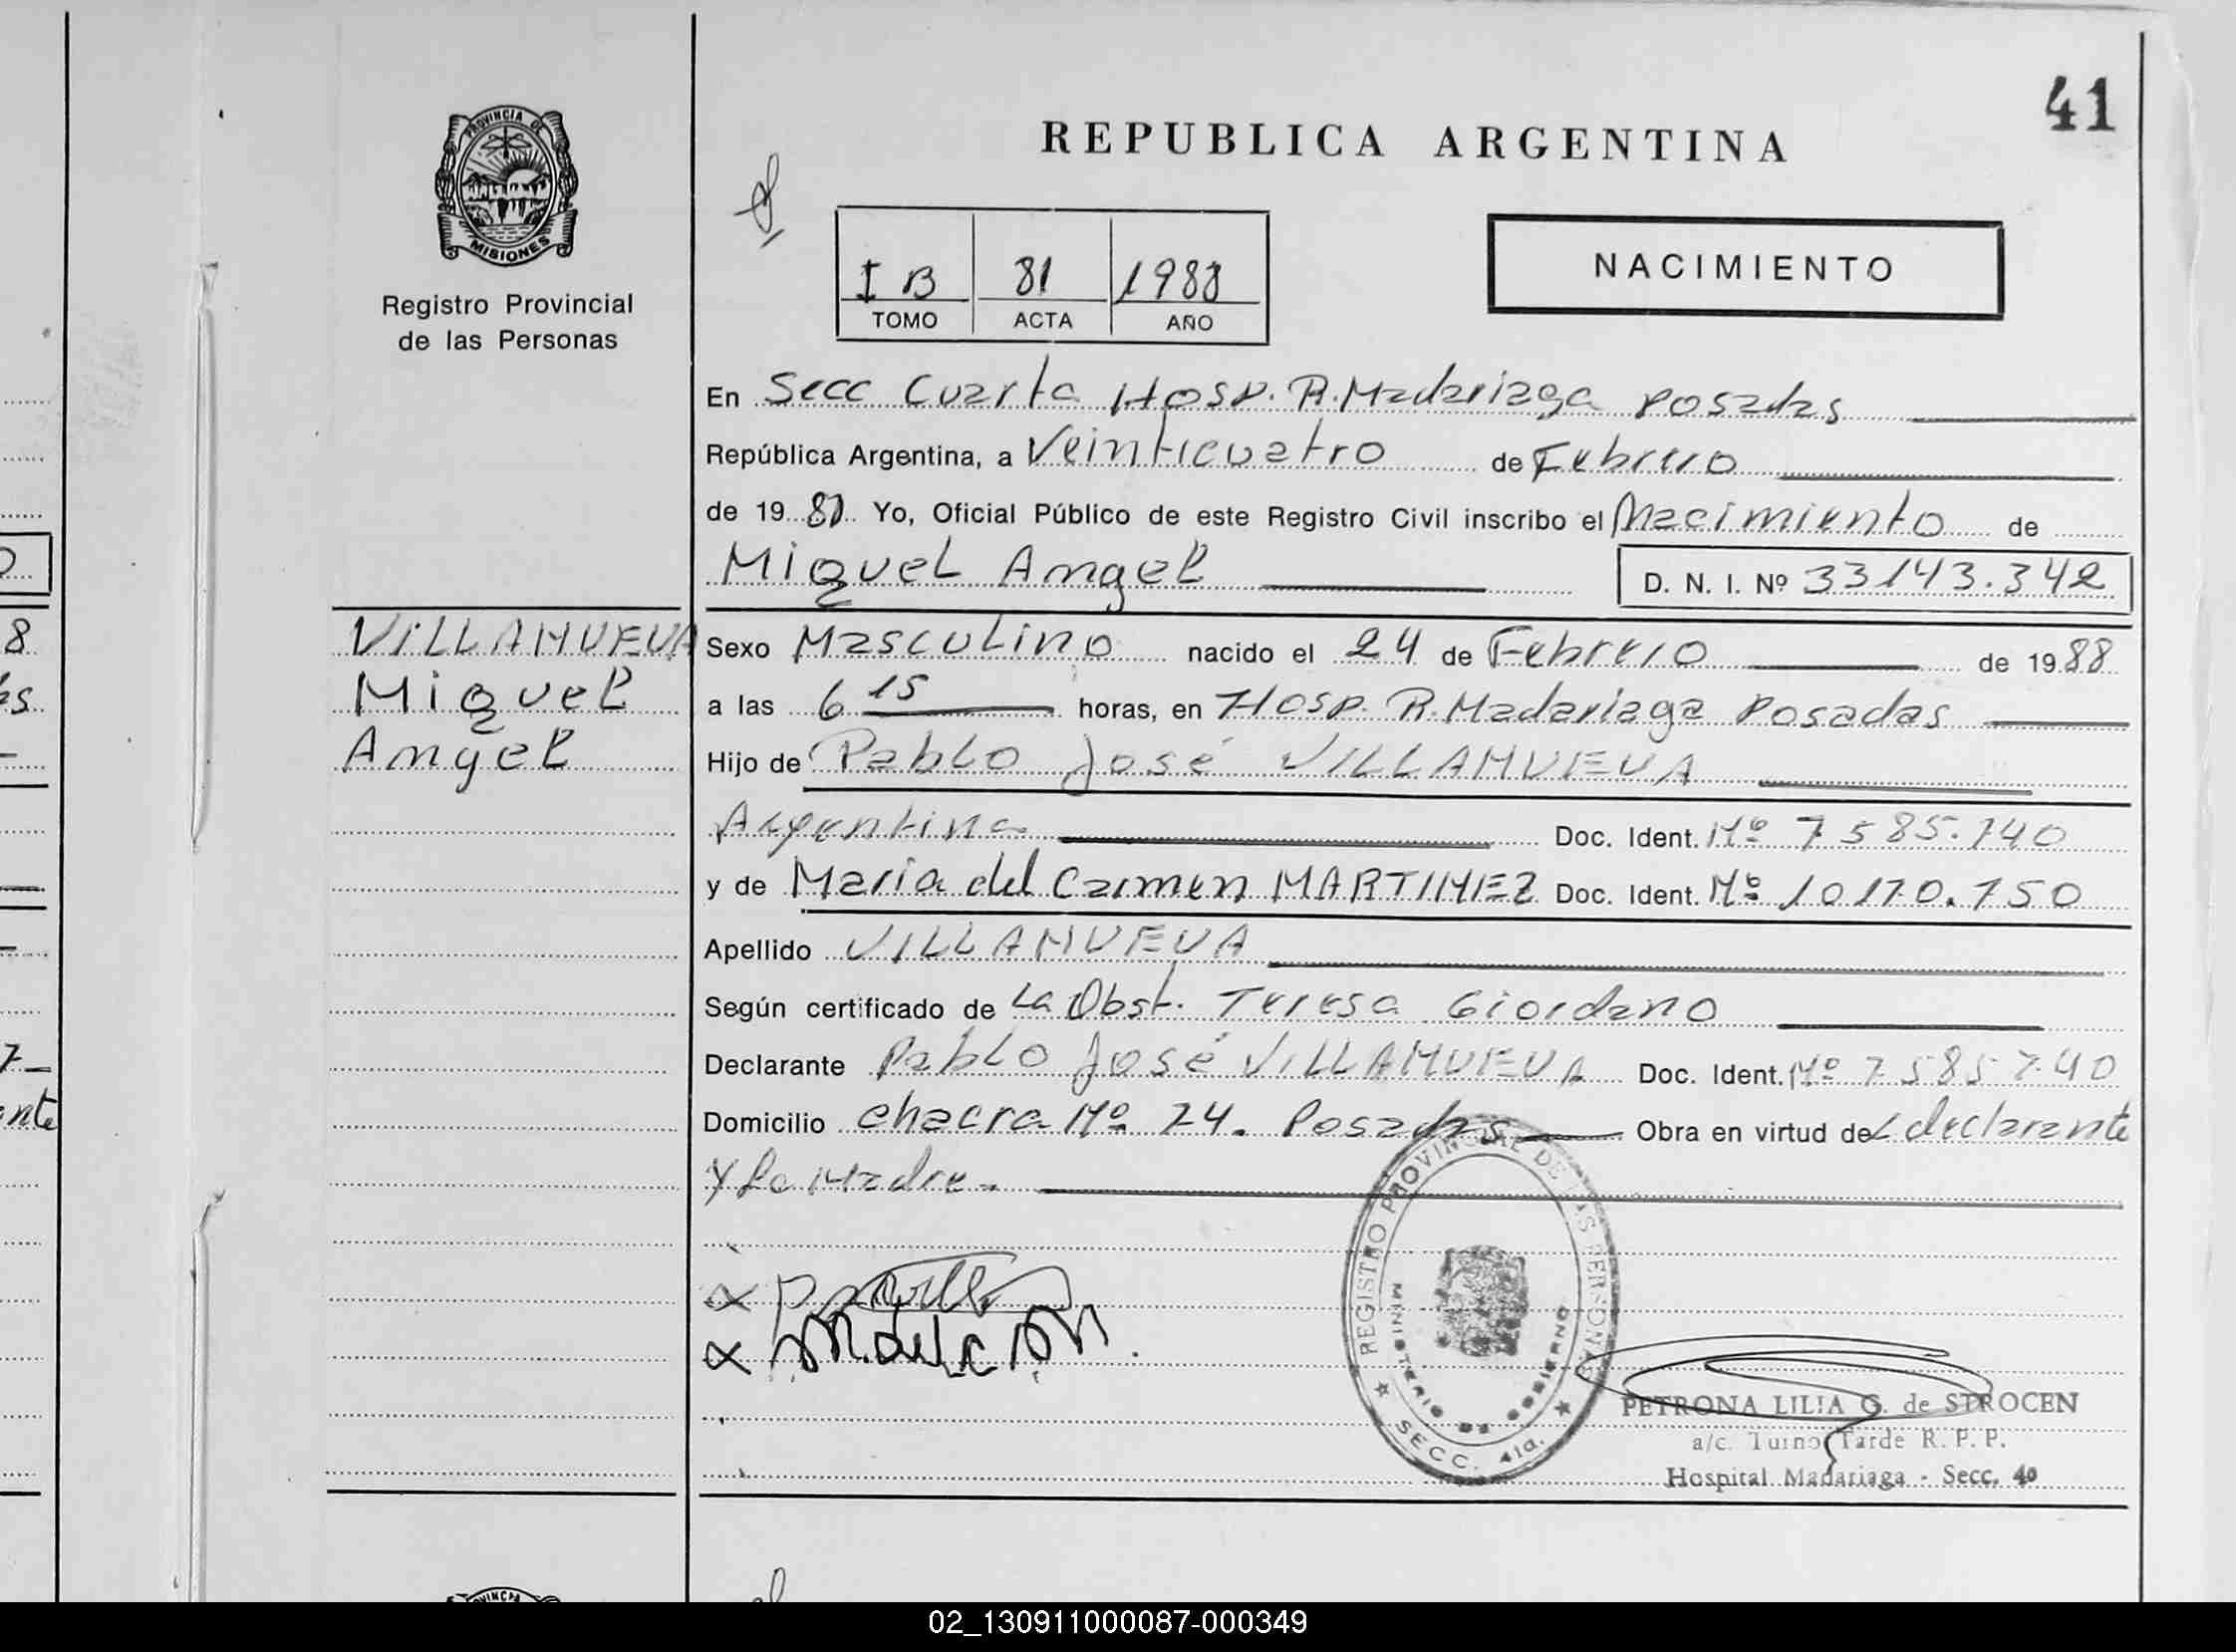 41
REPUBLICA ARGENTINA
PROVINCIA DE
MISIONES
Registro Provincial
de las Personas
I B 81 1988
TOMO ACTA AÑO
NACIMIENTO
En Secc Cuarta Hosp. R. Madariaga Posadas
República Argentina, a Veinticuatro de Febrero
de 19 88 Yo, Oficial Público de este Registro Civil inscribo el Nacimiento de
Miguel Angel D. N. I. Nº 33143.342
VILLANUEVA
Miguel
Angel
Sexo Masculino nacido el 24 de Febrero de 1988
a las 6 15 horas, en Hosp. R. Madariaga Posadas
Hijo de Pablo José VILLANUEVA
Argentina Doc. Ident. Nº 7585.740
y de Maria del Carmen MARTINEZ Doc. Ident. Nº 10170.750
Apellido VILLANUEVA
Según certificado de La Obst. Teresa Giordano
Declarante Pablo José VILLANUEVA Doc. Ident. Nº 7585740
Domicilio chacra Nº 74. Posadas Obra en virtud del declarante
y la Madre.
REGISTRO PROVINCIAL DE LAS PERSONAS
MINISTERIO DE GOBIERNO
SECC. 4ta.
PETRONA LILIA G. de STROCEN
a/c. Turno Tarde R. P. P.
Hospital Madariaga - Secc. 4a
02_130911000087-000349